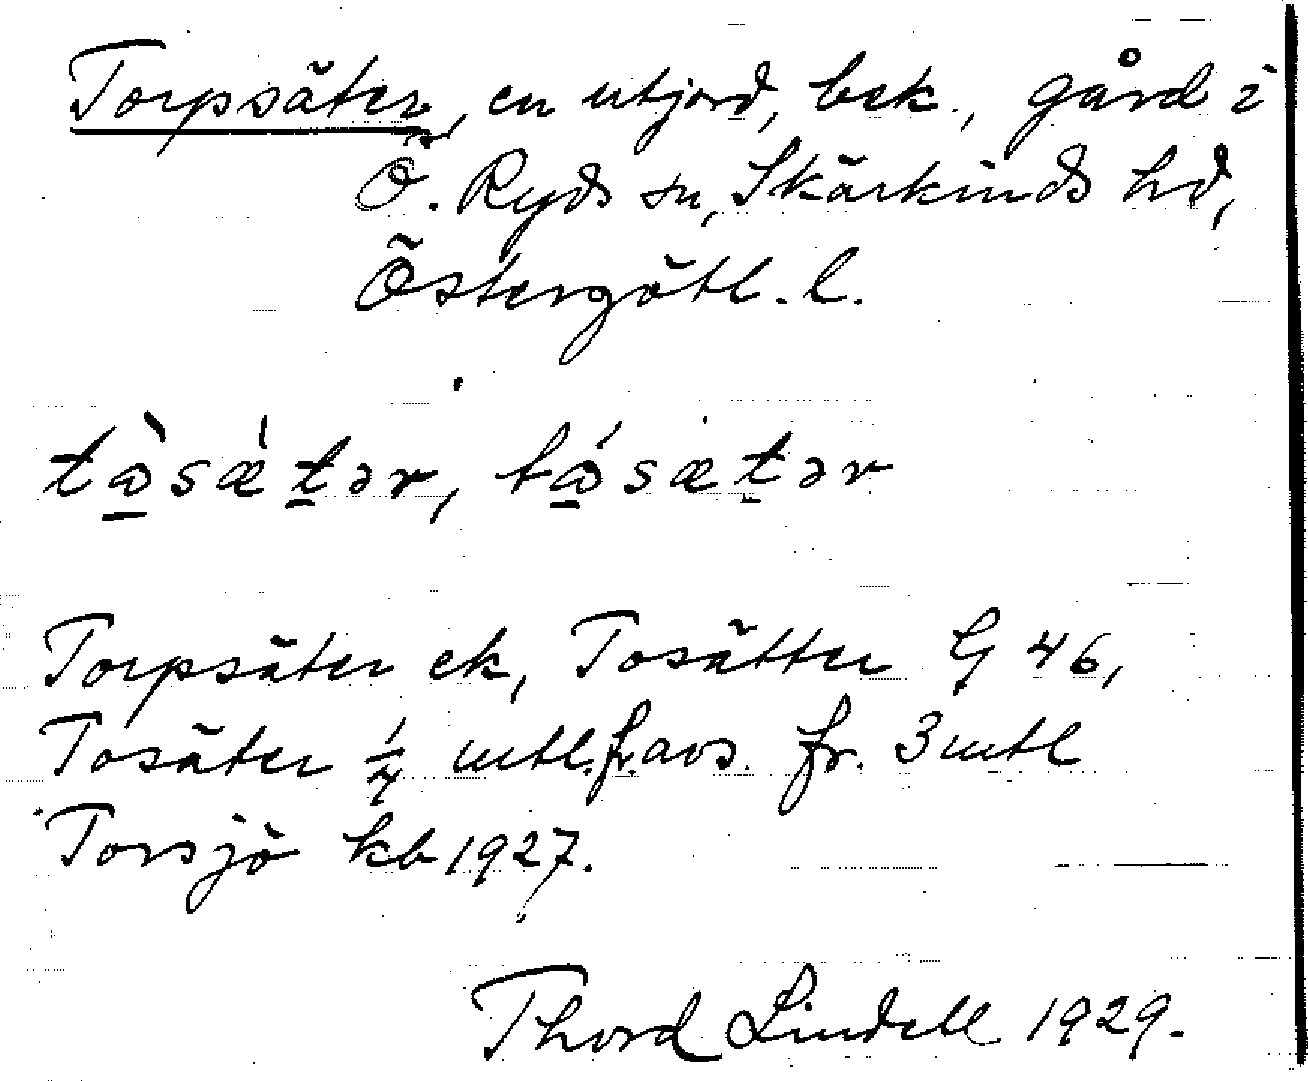 Torpsäter, en utjord, bek., gård i
Ö. Ryds sn, Skärkinds hd,
Östergötl. l.
tὰsǽtər, tásætər
Torpsäter ek, Tosätter G 46,
Tosäter 1/4 mtl. fr. avs. fr. 3 mtl
Torsjö kb 1927.
Thord Lindell 1929.